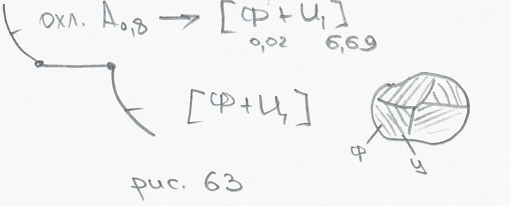 охл. A₀,₈ → [Ф + Ц₁]
0,02 6,69
[Ф+Ц₁]
Ф
Ц
рис. 63